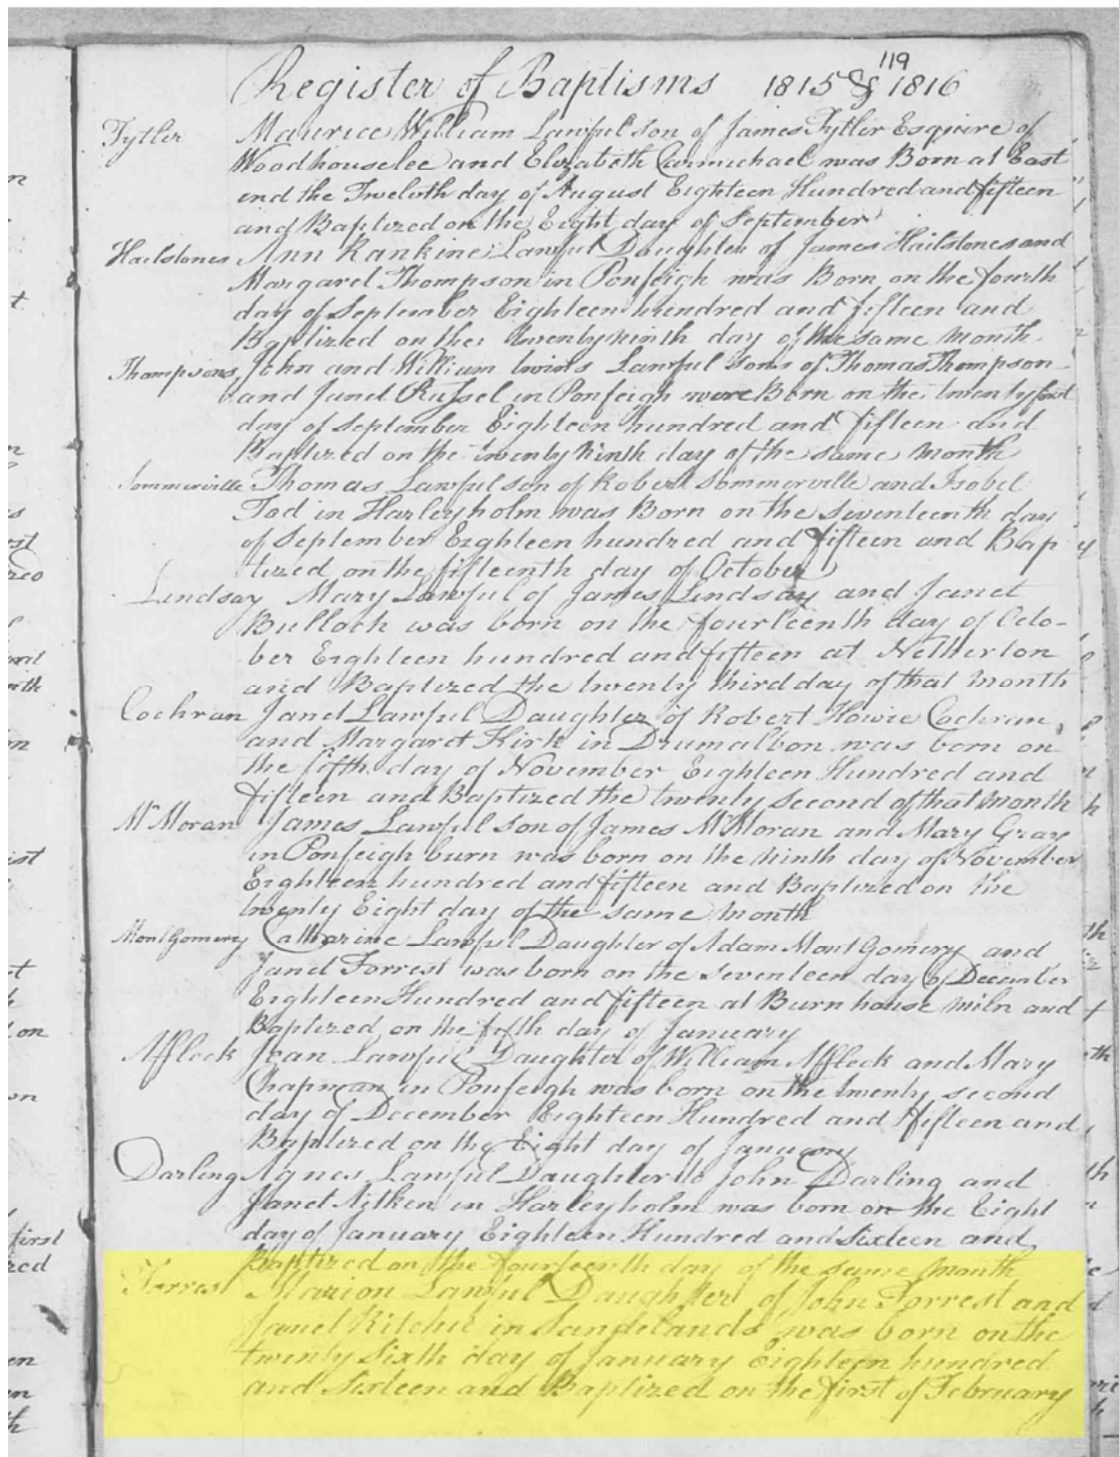 119
Register of Baptisms 1815 & 1816
Tytler Maurice William Lawful son of James Tytler Esquire of
Woodhouselee and Elizabeth Carmichael was Born at East
end the Twelvth day of August Eighteen Hundred and fifteen
and Baptized on the Eight day of September
Hailstones Ann Rankine Lawful Daughter of James Hailstones and
Margaret Thompson in Ponfeigh was Born on the fourth
day of September Eighteen hundred and fifteen and
Baptized on the twenty ninth day of the same month
Thompsons John and William twins Lawful sons of Thomas Thompson
and Janet Russel in Ponfeigh were Born on the twenty first
day of September Eighteen hundred and fifteen and
Baptized on the twenty ninth day of the same month
Sommerville Thomas Lawful son of Robert Sommerville and Isobel
Tod in Harleyholm was Born on the Seventeenth day
of September Eighteen hundred and fifteen and Bap
tized on the fifteenth day of October
Lindsay Mary Lawful of James Lindsay and Janet
Bulloch was born on the fourteenth day of Octo-
ber Eighteen hundred and fifteen at Netherton
and Baptized the twenty third day of that month
Cochran Janet Lawful Daughter of Robert Howie Cochran
and Margaret Kirk in Drumalbon was born on
the fifth day of November Eighteen Hundred and
fifteen and Baptized the twenty second of that month
McMoran James Lawful son of James McMoran and Mary Gray
in Ponfeigh burn was born on the ninth day of November
Eighteen hundred and fifteen and Baptized on the
twenty Eight day of the same month
MontGomery Catharine Lawful Daughter of Adam MontGomery and
Janet Forrest was born on the seventeen day of December
Eighteen Hundred and fifteen at Burnhouse miln and
Baptized on the fifth day of January
Affleck Jean Lawful Daughter of William Affleck and Mary
Chapman in Ponfeigh was born on the twenty second
day of December Eighteen Hundred and fifteen and
Baptized on the Eight day of January
Darling Agnes Lawful Daughter to John Darling and
Janet Aitken in Harleyholm was born on the Eight
day of January Eighteen Hundred and Sixteen and
Baptized on the fourteenth day of the same month
Forrest Marion Lawful Daughter of John Forrest and
Janet Ritchie in Sandelands was born on the
twenty Sixth day of January Eighteen hundred
and Sixteen and Baptized on the first of February